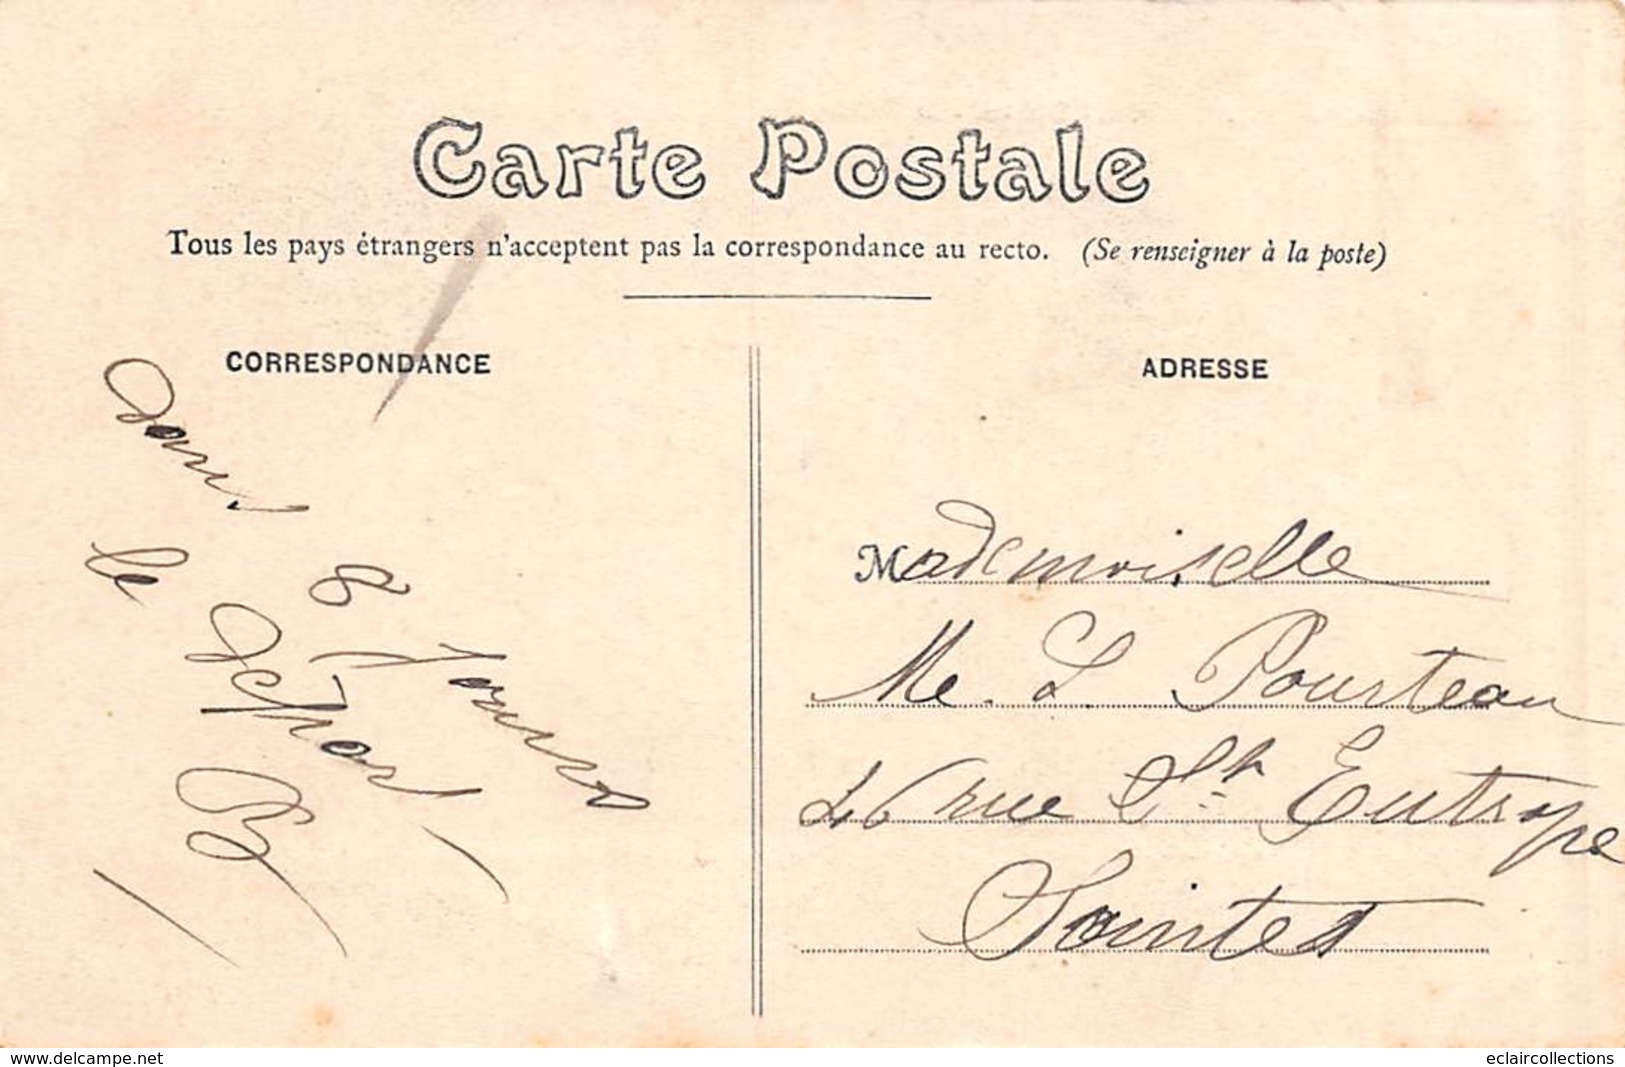 Carte Postale
Tous les pays étrangers n'acceptent pas la correspondance au recto. (Se renseigner à la poste)
CORRESPONDANCE
Dans 8 Jours
le Départ
B
ADRESSE
Mademoiselle
Me. L Pourteau
46 rue St Eutrope
Saintes
www.delcampe.net
eclaircollections